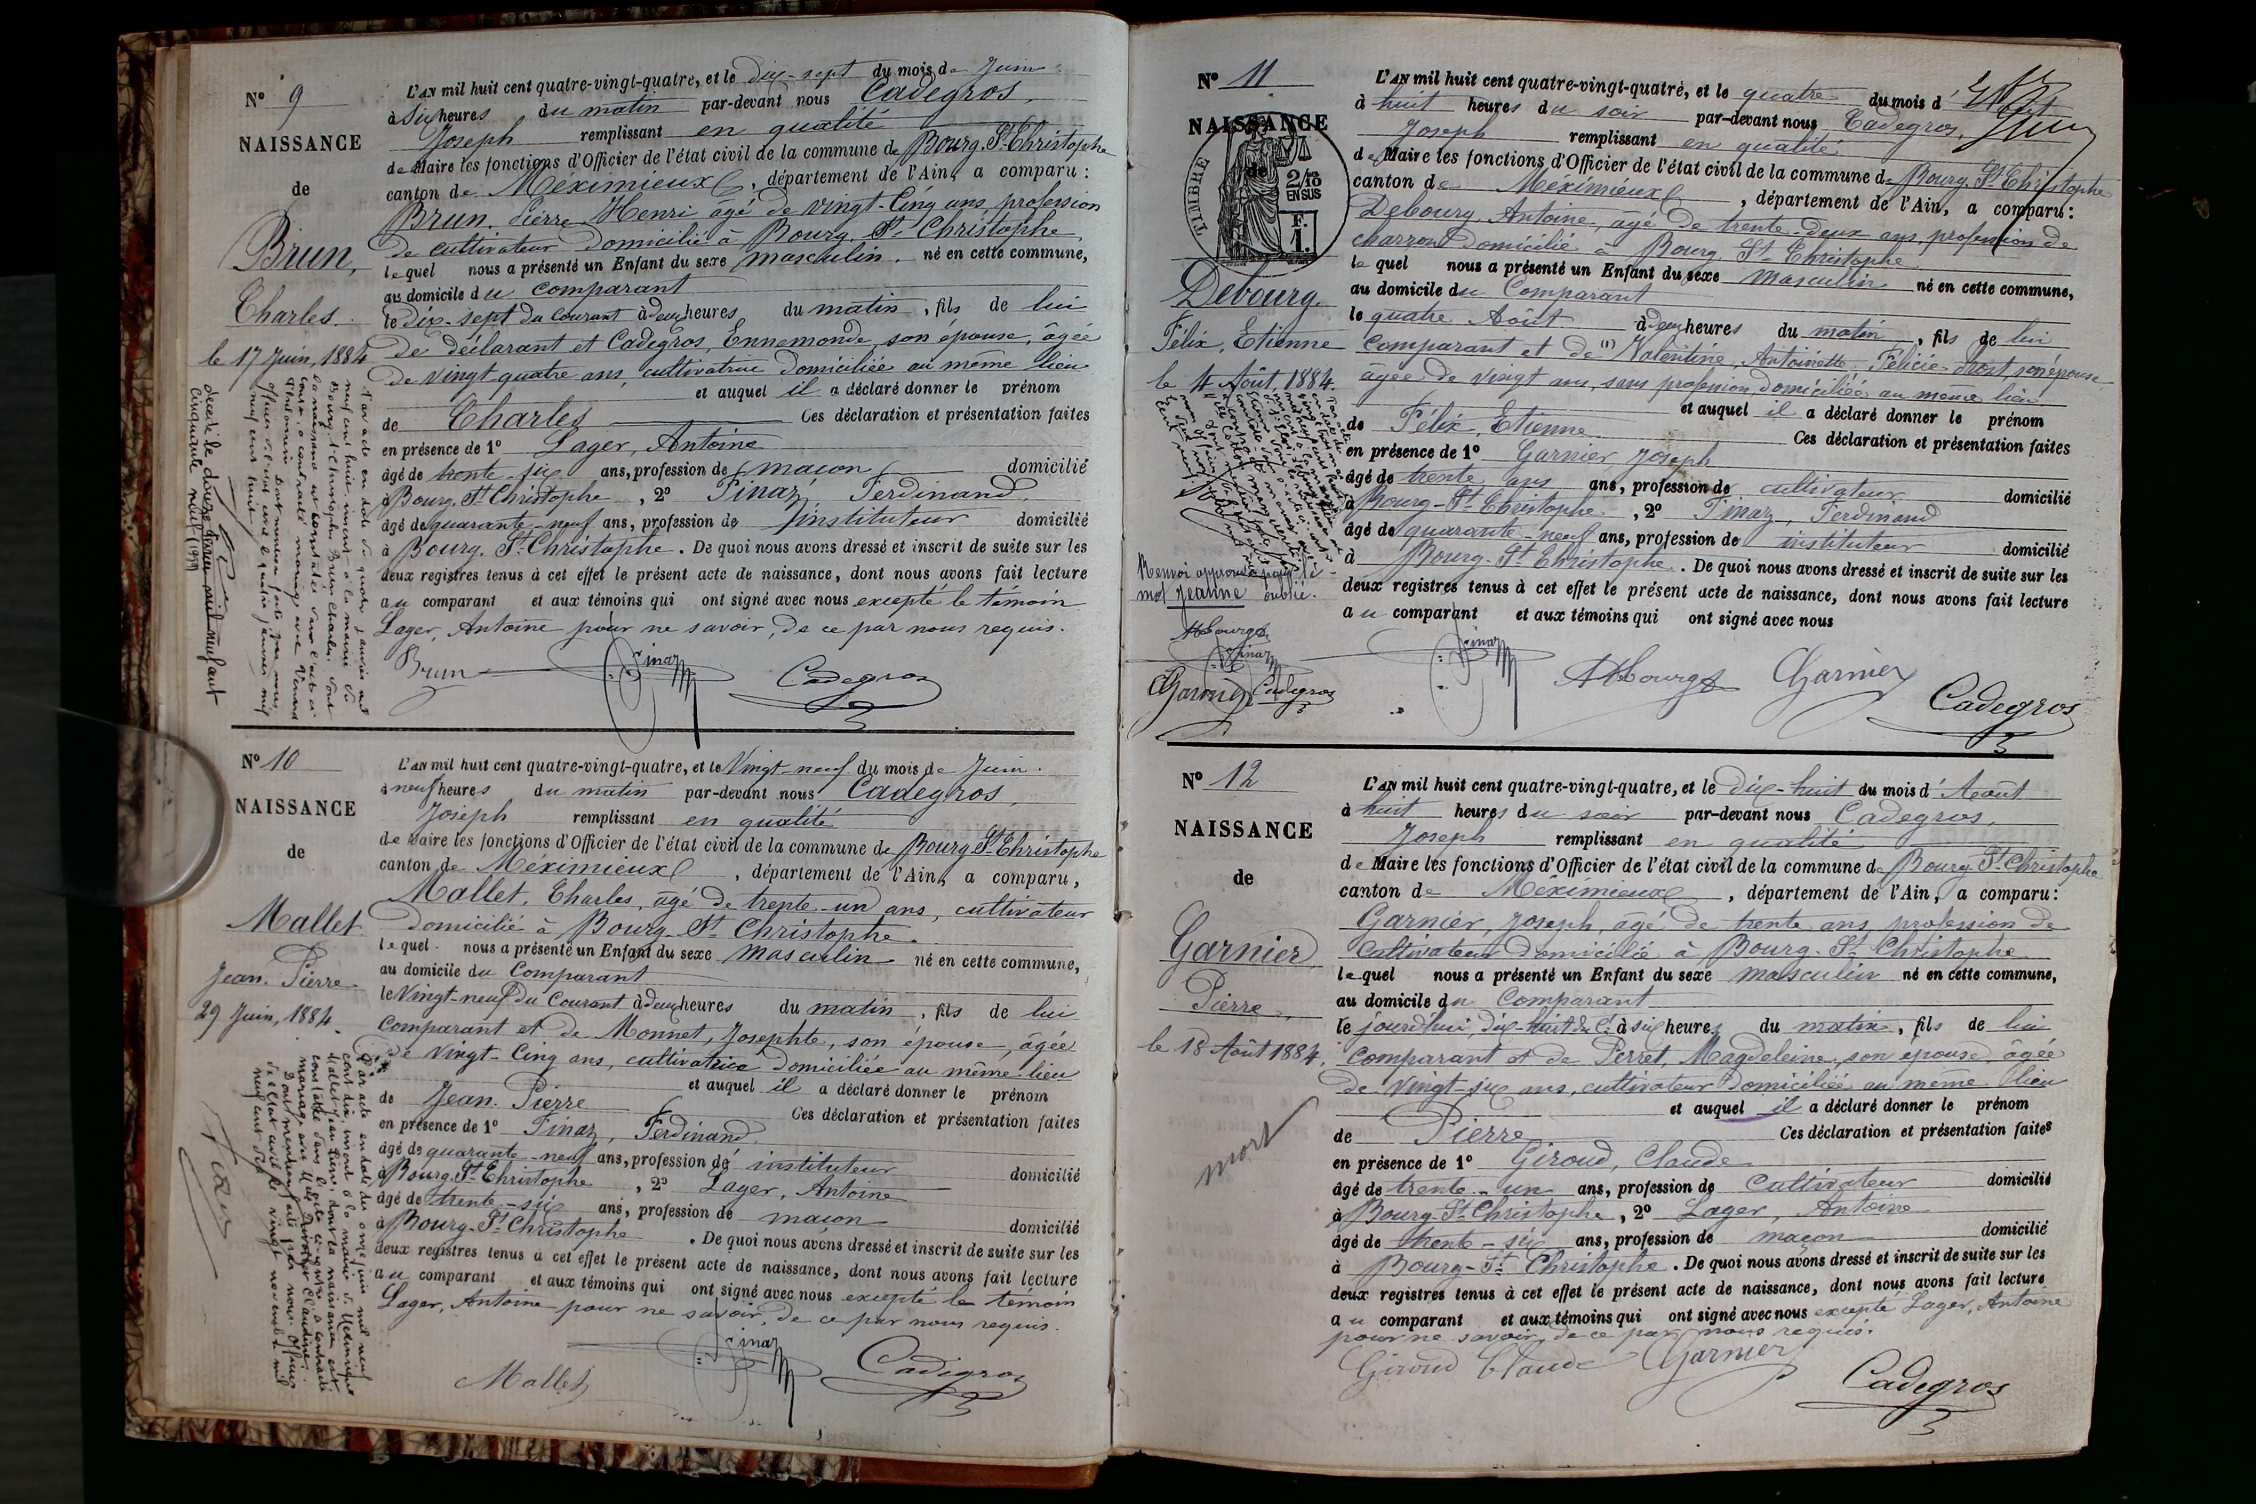 N° 9
NAISSANCE
de
Brun,
Charles.
le 17 Juin, 1884
L'AN mil huit cent quatre-vingt-quatre, et le dix-sept du mois de Juin
à six heures du matin par-devant nous Cadegros,
Joseph remplissant en qualité
de Maire les fonctions d'Officier de l'état civil de la commune de Bourg-St-Christophe
canton de Méximieux, département de l'Ain, a comparu :
Brun, Pierre Henri âgé de vingt-cinq ans, profession
de cultivateur domicilié à Bourg-St-Christophe,
lequel nous a présenté un Enfant du sexe masculin, né en cette commune,
au domicile du comparant
le dix-sept du courant à deux heures du matin, fils de lui
de déclarant et Cadegros, Ennemonde, son épouse, âgée
de vingt-quatre ans, cultivatrice domiciliée au même lieu
et auquel il a déclaré donner le prénom
de Charles Ces déclaration et présentation faites
en présence de 1° Lager, Antoine
âgé de trente-six ans, profession de maçon domicilié
à Bourg-St-Christophe, 2° Finaz, Ferdinand,
âgé de quarante-neuf ans, profession de instituteur domicilié
à Bourg-St-Christophe. De quoi nous avons dressé et inscrit de suite sur les
deux registres tenus à cet effet le présent acte de naissance, dont nous avons fait lecture
au comparant et aux témoins qui ont signé avec nous excepté le témoin
Lager, Antoine pour ne savoir, de ce par nous requis.
Brun Finaz Cadegros
Par acte en date du quatre janvier mil
neuf cent huit, inscrit à la mairie de
Bourg-St-Christophe, Brun Charles, dont
la naissance est constatée dans l'acte ci
contre, a contracté mariage avec
Dont mention faite par nous,
officier de l'état civil le quatre janvier mil
neuf cent huit.
décédé le douze mil neuf cent
cinquante neuf (1959)
N° 10
NAISSANCE
de
Mallet
Jean-Pierre
29 Juin, 1884.
L'AN mil huit cent quatre-vingt-quatre, et le Vingt-neuf du mois de Juin
à neuf heures du matin par-devant nous Cadegros,
Joseph remplissant en qualité
de Maire les fonctions d'Officier de l'état civil de la commune de Bourg-St-Christophe
canton de Méximieux, département de l'Ain, a comparu,
Mallet, Charles, âgé de trente-un ans, cultivateur
domicilié à Bourg-St-Christophe.
lequel nous a présenté un Enfant du sexe masculin né en cette commune,
au domicile du comparant
le Vingt-neuf du Courant à deux heures du matin, fils de lui
comparant et de Monnet, Josephte, son épouse, âgée
de vingt-cinq ans, cultivatrice domiciliée au même lieu
et auquel il a déclaré donner le prénom
de Jean-Pierre Ces déclaration et présentation faites
en présence de 1° Finaz, Ferdinand
âgé de quarante-neuf ans, profession de instituteur domicilié
à Bourg-St-Christophe, 2° Lager, Antoine
âgé de trente-six ans, profession de maçon domicilié
à Bourg-St-Christophe. De quoi nous avons dressé et inscrit de suite sur les
deux registres tenus à cet effet le présent acte de naissance, dont nous avons fait lecture
au comparant et aux témoins qui ont signé avec nous excepté le témoin
Lager, Antoine pour ne savoir, de ce par nous requis.
Mallet Finaz Cadegros
Par acte en date du onze juin mil neuf
cent dix, inscrit à la mairie de
Mallet Jean Pierre, dont la naissance est
constatée dans l'acte ci-contre a contracté
mariage avec Claudine.
Dont mention faite par nous Officier
de l'Etat civil le vingt novembre mil
neuf cent dix.
N° 11
NAISSANCE
de
TIMBRE
2/10 EN SUS
F. 1.
Debourg.
Félix, Etienne
le 4 Août, 1884.
L'AN mil huit cent quatre-vingt-quatre, et le quatre du mois d'Août
à huit heures du soir par-devant nous Cadegros,
Joseph remplissant en qualité
de Maire les fonctions d'Officier de l'état civil de la commune de Bourg-St-Christophe
canton de Méximieux, département de l'Ain, a comparu :
Debourg, Antoine, âgé de trente-deux ans, profession de
charron domicilié à Bourg-St-Christophe
lequel nous a présenté un Enfant du sexe masculin né en cette commune,
au domicile du Comparant
le quatre Août à deux heures du matin, fils de lui
comparant et de (1) Valentine, Antoinette, Félicie son épouse
âgée de vingt ans, sans profession, domiciliée au même lieu
et auquel il a déclaré donner le prénom
de Félix, Etienne Ces déclaration et présentation faites
en présence de 1° Garnier Joseph
âgé de trente ans ans, profession de cultivateur domicilié
à Bourg-St-Christophe, 2° Finaz, Ferdinand
âgé de quarante-neuf ans, profession de instituteur domicilié
à Bourg-St-Christophe. De quoi nous avons dressé et inscrit de suite sur les
deux registres tenus à cet effet le présent acte de naissance, dont nous avons fait lecture
au comparant et aux témoins qui ont signé avec nous
Finaz Garnier Cadegros
Renvoi approuvé pour le
mot Jeanne oublié.
Finaz
Garnier Cadegros
N° 12
NAISSANCE
de
Garnier
Pierre,
le 18 Août 1884.
mort
L'AN mil huit cent quatre-vingt-quatre, et le dix-huit du mois d'Août
à huit heures du soir par-devant nous Cadegros,
Joseph remplissant en qualité
de Maire les fonctions d'Officier de l'état civil de la commune de Bourg-St-Christophe
canton de Méximieux, département de l'Ain, a comparu :
Garnier, Joseph, âgé de trente ans, profession de
cultivateur domicilié à Bourg-St-Christophe
lequel nous a présenté un Enfant du sexe masculin né en cette commune,
au domicile du Comparant
le jourd'hui, dix-huit du Ct à six heures du matin, fils de lui
comparant et de Perret, Magdeleine, son épouse, âgée
de vingt-six ans, cultivateur domiciliée au même lieu
et auquel il a déclaré donner le prénom
de Pierre Ces déclaration et présentation faites
en présence de 1° Giroud, Claude
âgé de trente-un ans, profession de Cultivateur domicilié
à Bourg-St-Christophe, 2° Lager, Antoine
âgé de trente-six ans, profession de maçon domicilié
à Bourg-St-Christophe. De quoi nous avons dressé et inscrit de suite sur les
deux registres tenus à cet effet le présent acte de naissance, dont nous avons fait lecture
au comparant et aux témoins qui ont signé avec nous excepté Lager, Antoine
pour ne savoir, de ce par nous requis.
Giroud Claude Garnier
Cadegros